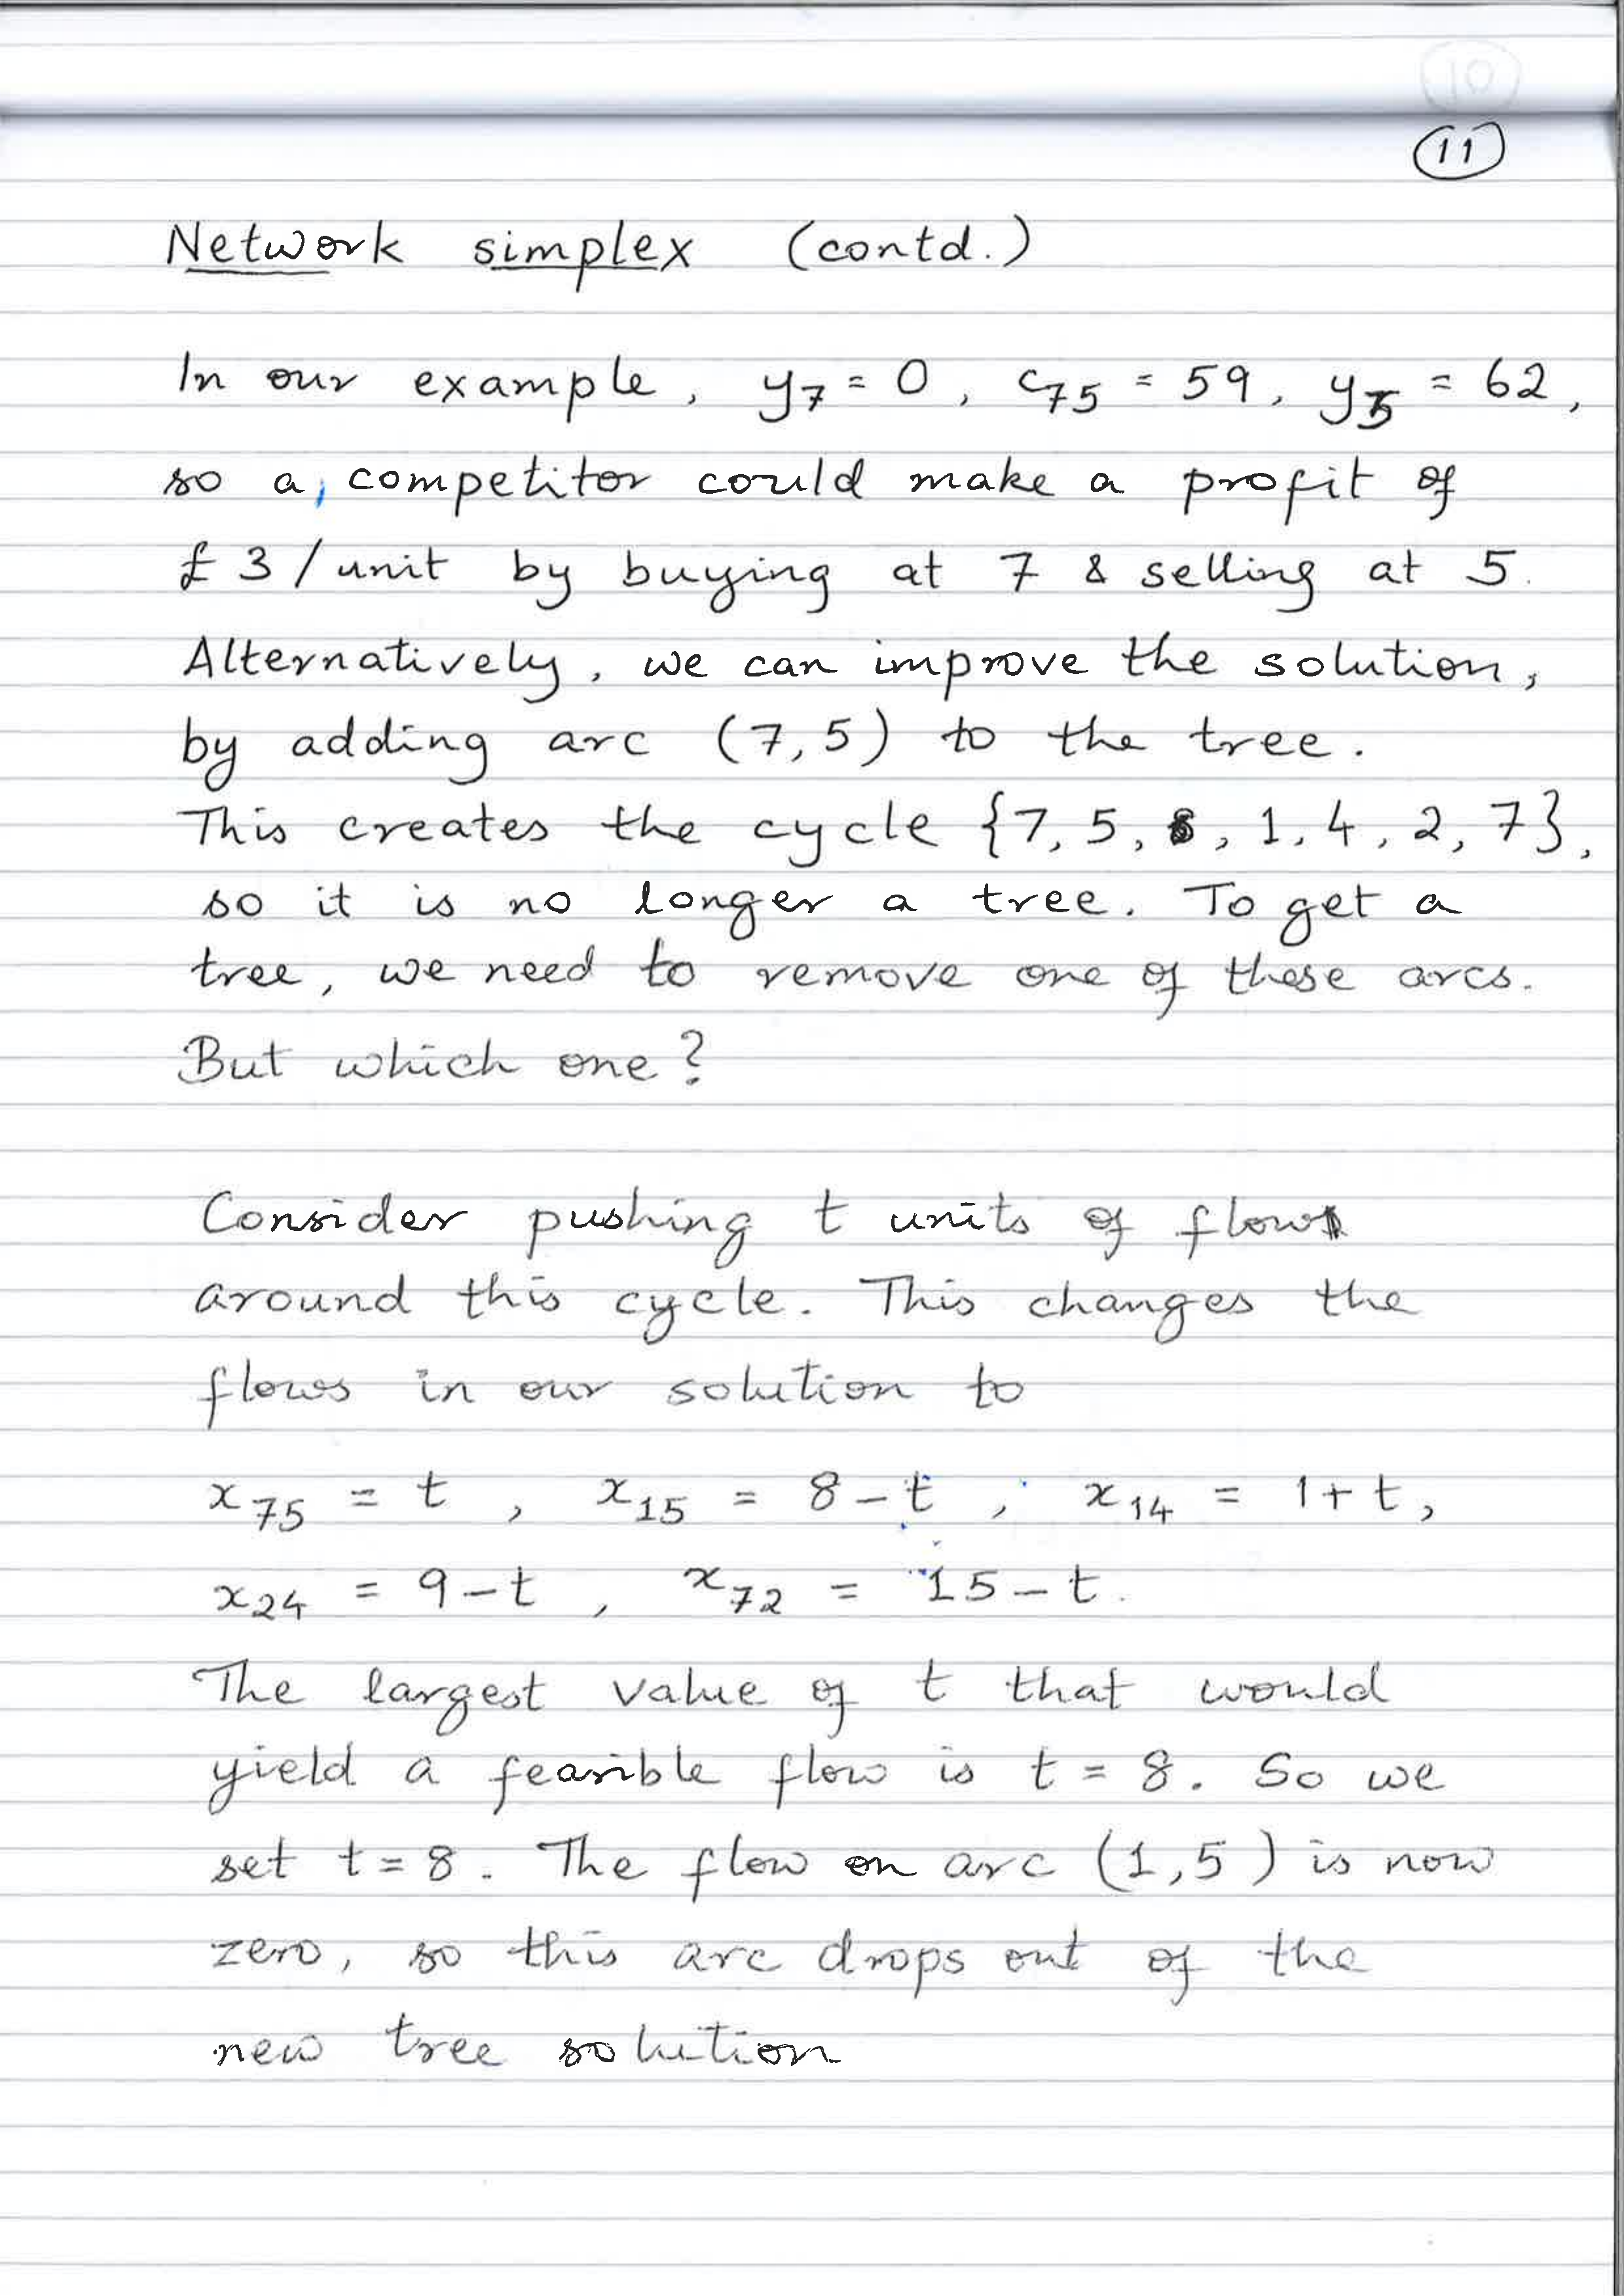 10
11
Network simplex (contd.)
In our example, y₇ = 0, c₇₅ = 59, y₅ = 62,
so a, competitor could make a profit of
£3/unit by buying at 7 & selling at 5.
Alternatively, we can improve the solution,
by adding arc (7,5) to the tree.
This creates the cycle {7, 5, , 1, 4, 2, 7},
so it is no longer a tree. To get a
tree, we need to remove one of these arcs.
But which one?
Consider pushing t units of flow
around this cycle. This changes the
flows in our solution to
x₇₅ = t, x₁₅ = 8-t, x₁₄ = 1+t,
x₂₄ = 9-t, x₇₂ = 15-t.
The largest value of t that would
yield a feasible flow is t = 8. So we
set t = 8. The flow on arc (1,5) is now
zero, so this arc drops out of the
new tree solution